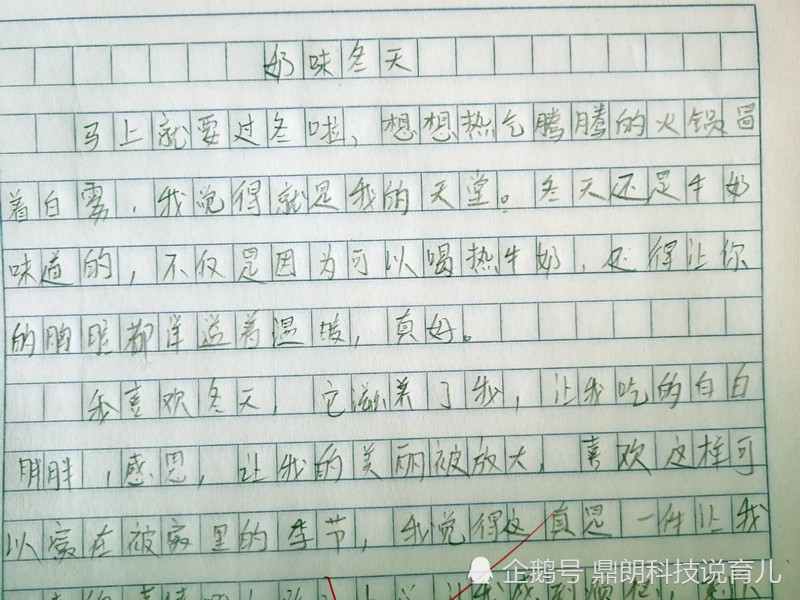 奶味冬天
马上就要过冬啦、想想热气腾腾的火锅冒
着白雾,我觉得就是我的天堂。冬天还是牛奶
味道的,不仅是因为可以喝热牛奶,还得让你
的胸腔都洋溢着温暖,真好。
我喜欢冬天,它滋养了我,让我吃的白白
胖胖,感恩,让我的美丽被放大,喜欢这样可
以窝在被窝里的季节,我觉得这真是一件让我
企鹅号 鼎朗科技说育儿